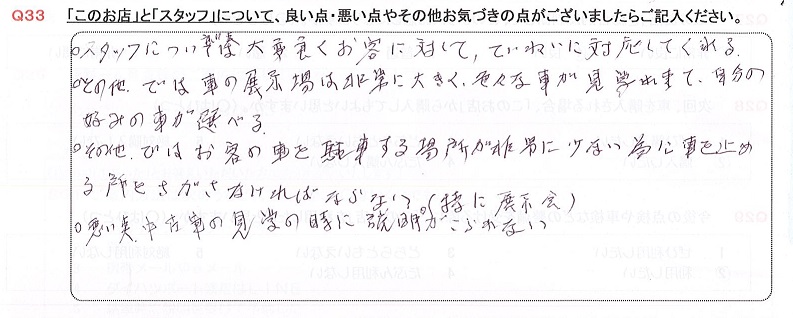 Q33 「このお店」と「スタッフ」について、良い点・悪い点やその他お気づきの点がございましたらご記入ください。
○スタッフについては大変良くお客に対して,ていねいに対応してくれる.
○その他.では車の展示場は非常に大きく,色々な車が見学出来て,自分の
好みの車が選べる.
○その他.ではお客の車を駐車する場所が非常に少ない為に車を止め
る所をさがさなければならない。(特に展示会)
○悪い点,中古車の見学の時に説明が